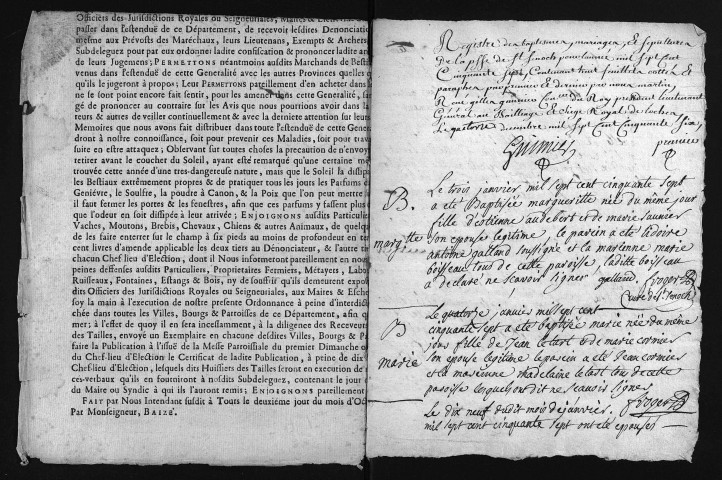 Officiers des Jurisdictions Royales ou Seigneuriales, Maires &
passer dans l'estenduë de ce Département, de recevoir lesdites Denonciati
mesme aux Prévosts des Maréchaux, leurs Lieutenans, Exempts & Archers
Subdeleguez pour par eux ordonner ladite confiscation & prononcer ladite am
de leurs Jugemens; PERMETTONS néantmoins ausdits Marchands de Besti
venus dans l'estenduë de cette Generalité avec les autres Provinces quelles q
qu'ils le jugeront à propos; Leur PERMETTONS pareillement d'en acheter dans l
ne se sont point encore fait sentir, pour les amener dans cette Generalité,
gé de prononcer au contraire sur les Avis que nous pourrions avoir dans la
leurs & autres de veiller continuellement & avec la derniere attention sur leurs
Memoires que nous avons fait distribuer dans toute l'estenduë de cette Genera
dront à notre connoissance, soit pour prevenir ces Maladies, soit pour trav
suite en estre attaquez; Observant sur toutes choses la precaution de n'envoy
retirer avant le coucher du Soleil, ayant esté remarqué qu'une certaine
trouvée cette année d'une tres-dangereuse nature, mais que le Soleil la dissip
les Bestiaux extrémement propres & de pratiquer tous les jours les Parfums d
Geniévre, le Soulfre, la poudre à Canon, & la Poix que l'on peut mettre
il faut fermer les portes & les fenestres, afin que ces parfums y fassent plus
que l'odeur en soit dissipée à leur arrivée; ENJOIGNONS ausdits Particulie
Vaches, Moutons, Brebis, Chevaux, Chiens & autres Animaux, de quelqu
de les faire enterrer sur le champ à six pieds au moins de profondeur en te
cent livres d'amende applicable les deux tiers au Dénonciateur, & l'autre tie
chacun Chef lieu d'Election, dont il Nous informeront pareillement en nous
peines deffenses ausdits Particuliers, Proprietaires Fermiers, Métayers, Lab
Ruisseaux, Fontaines, Estangs & Bois, ny de souffrir qu'ils demeurent expo
dits Officiers des Jurisdictions Royales ou Seigneuriales, aux Maires & Esche
soy la main à l'execution de nostre presente Ordonnance à peine d'interdi
chée dans toutes les Villes, Bourgs & Parroisses de ce Département, afin q
mer; à l'effet de quoy il en sera incessamment, à la diligence des Receveur
des Tailles, envoyé un Exemplaire en chacune desdites Villes, Bourgs & P
faire la Publication à l'issuë de la Messe Parroissale du premier Dimanche
du Chef-lieu d'Election le Certificat de ladite Publication, à peine de dix
Chef-lieu d'Election, lesquels dits Huissiers des Tailles seront en execution de
ces-verbaux qu'ils en fourniront à nosdits Subdeleguez, contenant le jour
du Maire ou Syndic à qui ils l'auront remis; ENJOIGNONS pareillement
FAIT par Nous Intendant susdit à Tours le deuxiéme jour du mois d'Oc
Par Monseigneur, BAIZÉ.
Registre des baptesmes, mariages, et sepultures
De la psse de St Enoch pour l'année mil sept cent
Cinquante sept, Contenant huit feuillets cottés et
paraphés par premier et dernier par nous martin,
Roy president lieutenant
General au Bailliage et Siege Royal de loches
Le quatorze decembre mil sept Cent Cinquante Six,
B.
margtte
Le trois janvier mil sept cent cinquante sept
a eté Baptisée margueritte née du même jour
fille d'estienne audebert et de marie saunier
son epouse legitime, le parein a eté isidoire
antoine galland soussigné et la mareinne marie
boisseau tous de cette paroisse, laditte boisseau
a declaré ne scavoir signer, galland. froger
Curé de St Enoch
B
marie
Le quatorze janvier mil sept cent
cinquante sept a eté baptisée marie née du même
jour fille de jean letast et de marie cormier
son epouse legitime le parein a eté jean cormier
et la mareinne madelaine letast tous de cette
paroisse lesquels ont dit ne scavoir signer
froger
Le dix neuf dudit mois de janvier
mil sept cent cinquante sept ont eté epousés